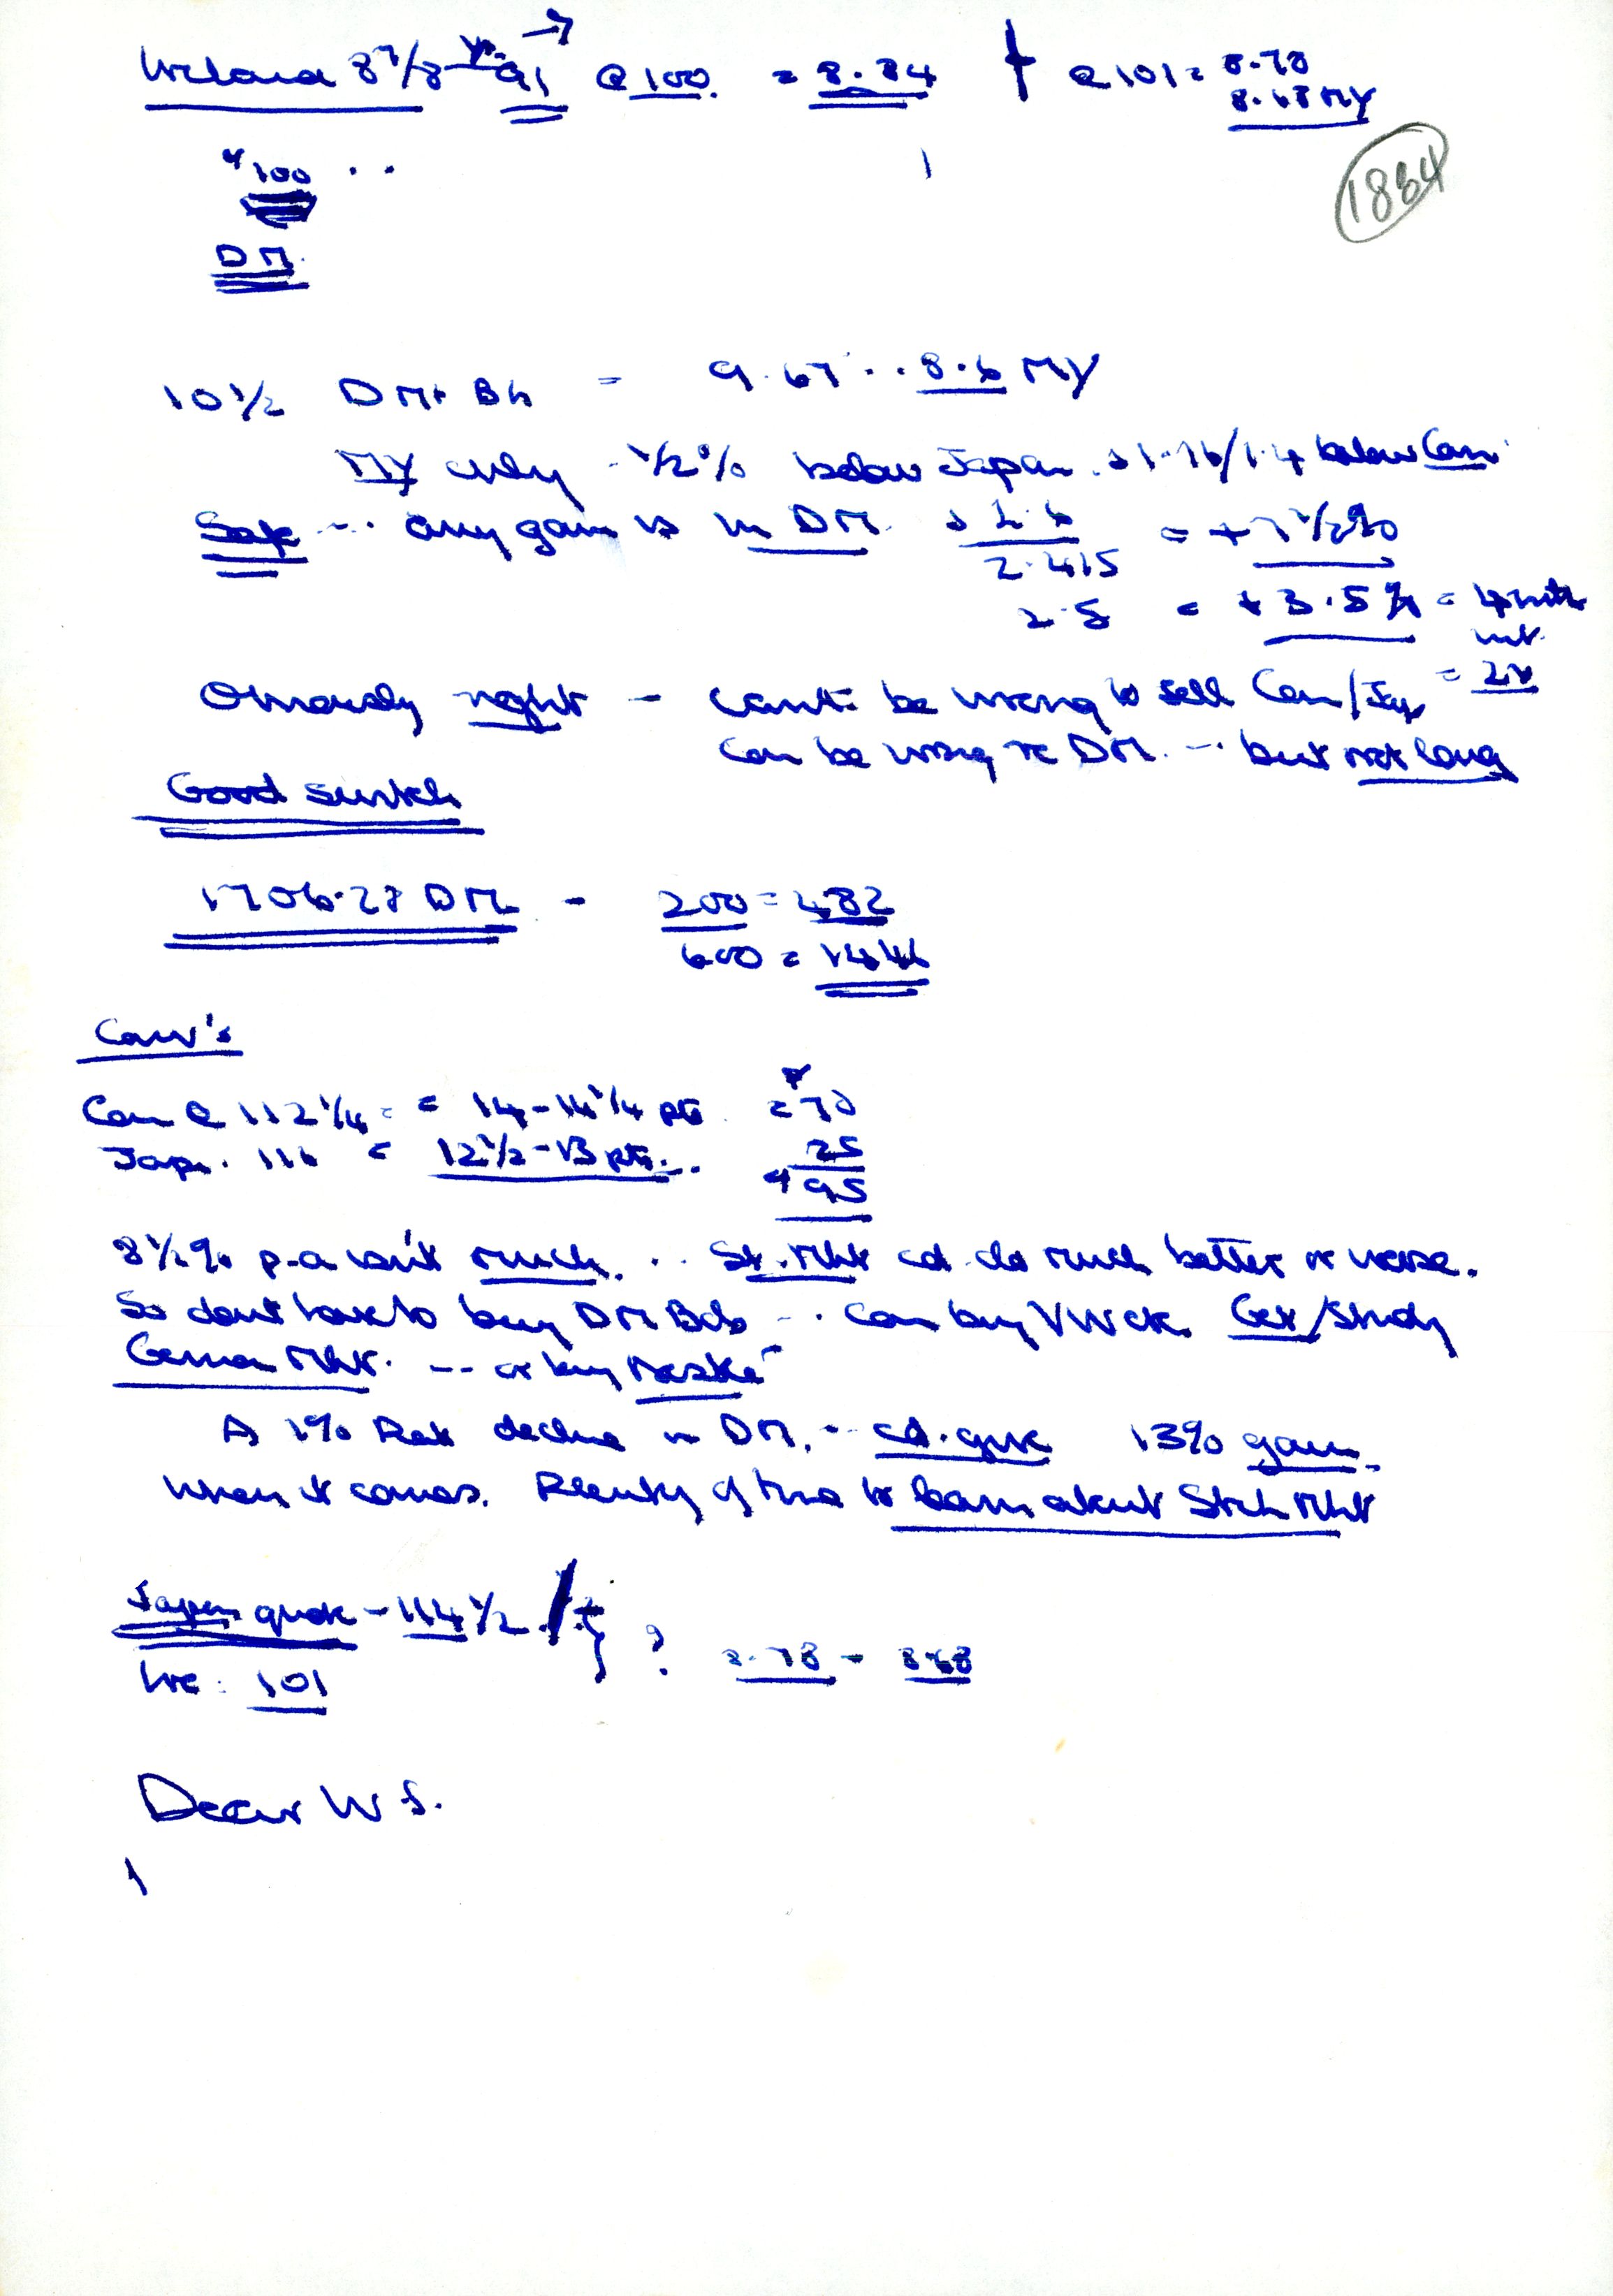 Ireland 8 7/8 91 @ 100. = 8.84 @ 101 = 8.78
8.68 MY
1884
100 ..
DM.
10 1/2 DM = 9.67 .. 8.6 MY
MY only 1/2 % below Japan 1.4 below Can
Safe ... any gain is in DM 2.6 = + 7 1/2 %
2.415
2.5 = + 3.5 % = 4 mths
int.
Obviously right - can't be wrong to sell Can/Jap
Can be wrong re DM ... but not long
Good switch
1706.27 DM - 200 = 482
600 = 1446
Can @ 112 1/4 = = 14 - 14 1/4 pts = 70
Jap. 116 = 12 1/2 - 13 pts... 25
95
8 1/2 % p.a isn't much. .. St. Mkt cd do much better or worse.
So don't have to buy DM Bds ... Can buy VW etc. Get/Study
German Mkt. --- or buy
A 1% Rate decline in DM, - cd. give 13% gain.
When it comes. Plenty of time to learn about Stk Mkt
Japan quote - 114 1/2
Ire : 101 ? 8.78 - 8.68
Dear W S.